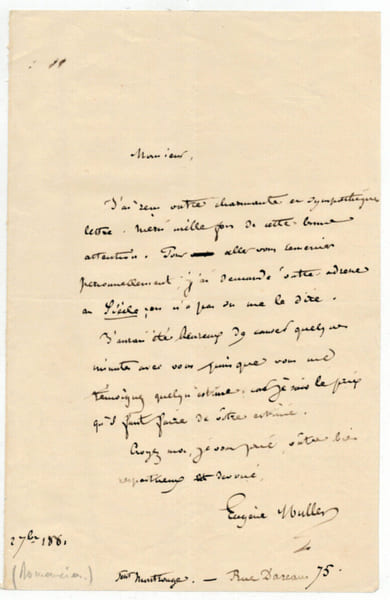 Monsieur,
J'ai reçu votre charmante et sympathique
lettre. Merci mille fois de cette bonne
attention. Pour aller vous remercier
personnellement, j'ai demandé votre adresse
au Siècle; on n'a pas su me la dire.
J'aurais été heureux de causer quelques
minutes avec vous puisque vous me
témoignez quelqu'estime, car je sais le prix
qu'il faut faire de votre estime.
Croyez moi, je vous prie, votre bien
respectueux et dévoué,
Eugène Muller
27bre 186
(Romancier.)
Petit Montrouge. — Rue Dareau, 75.